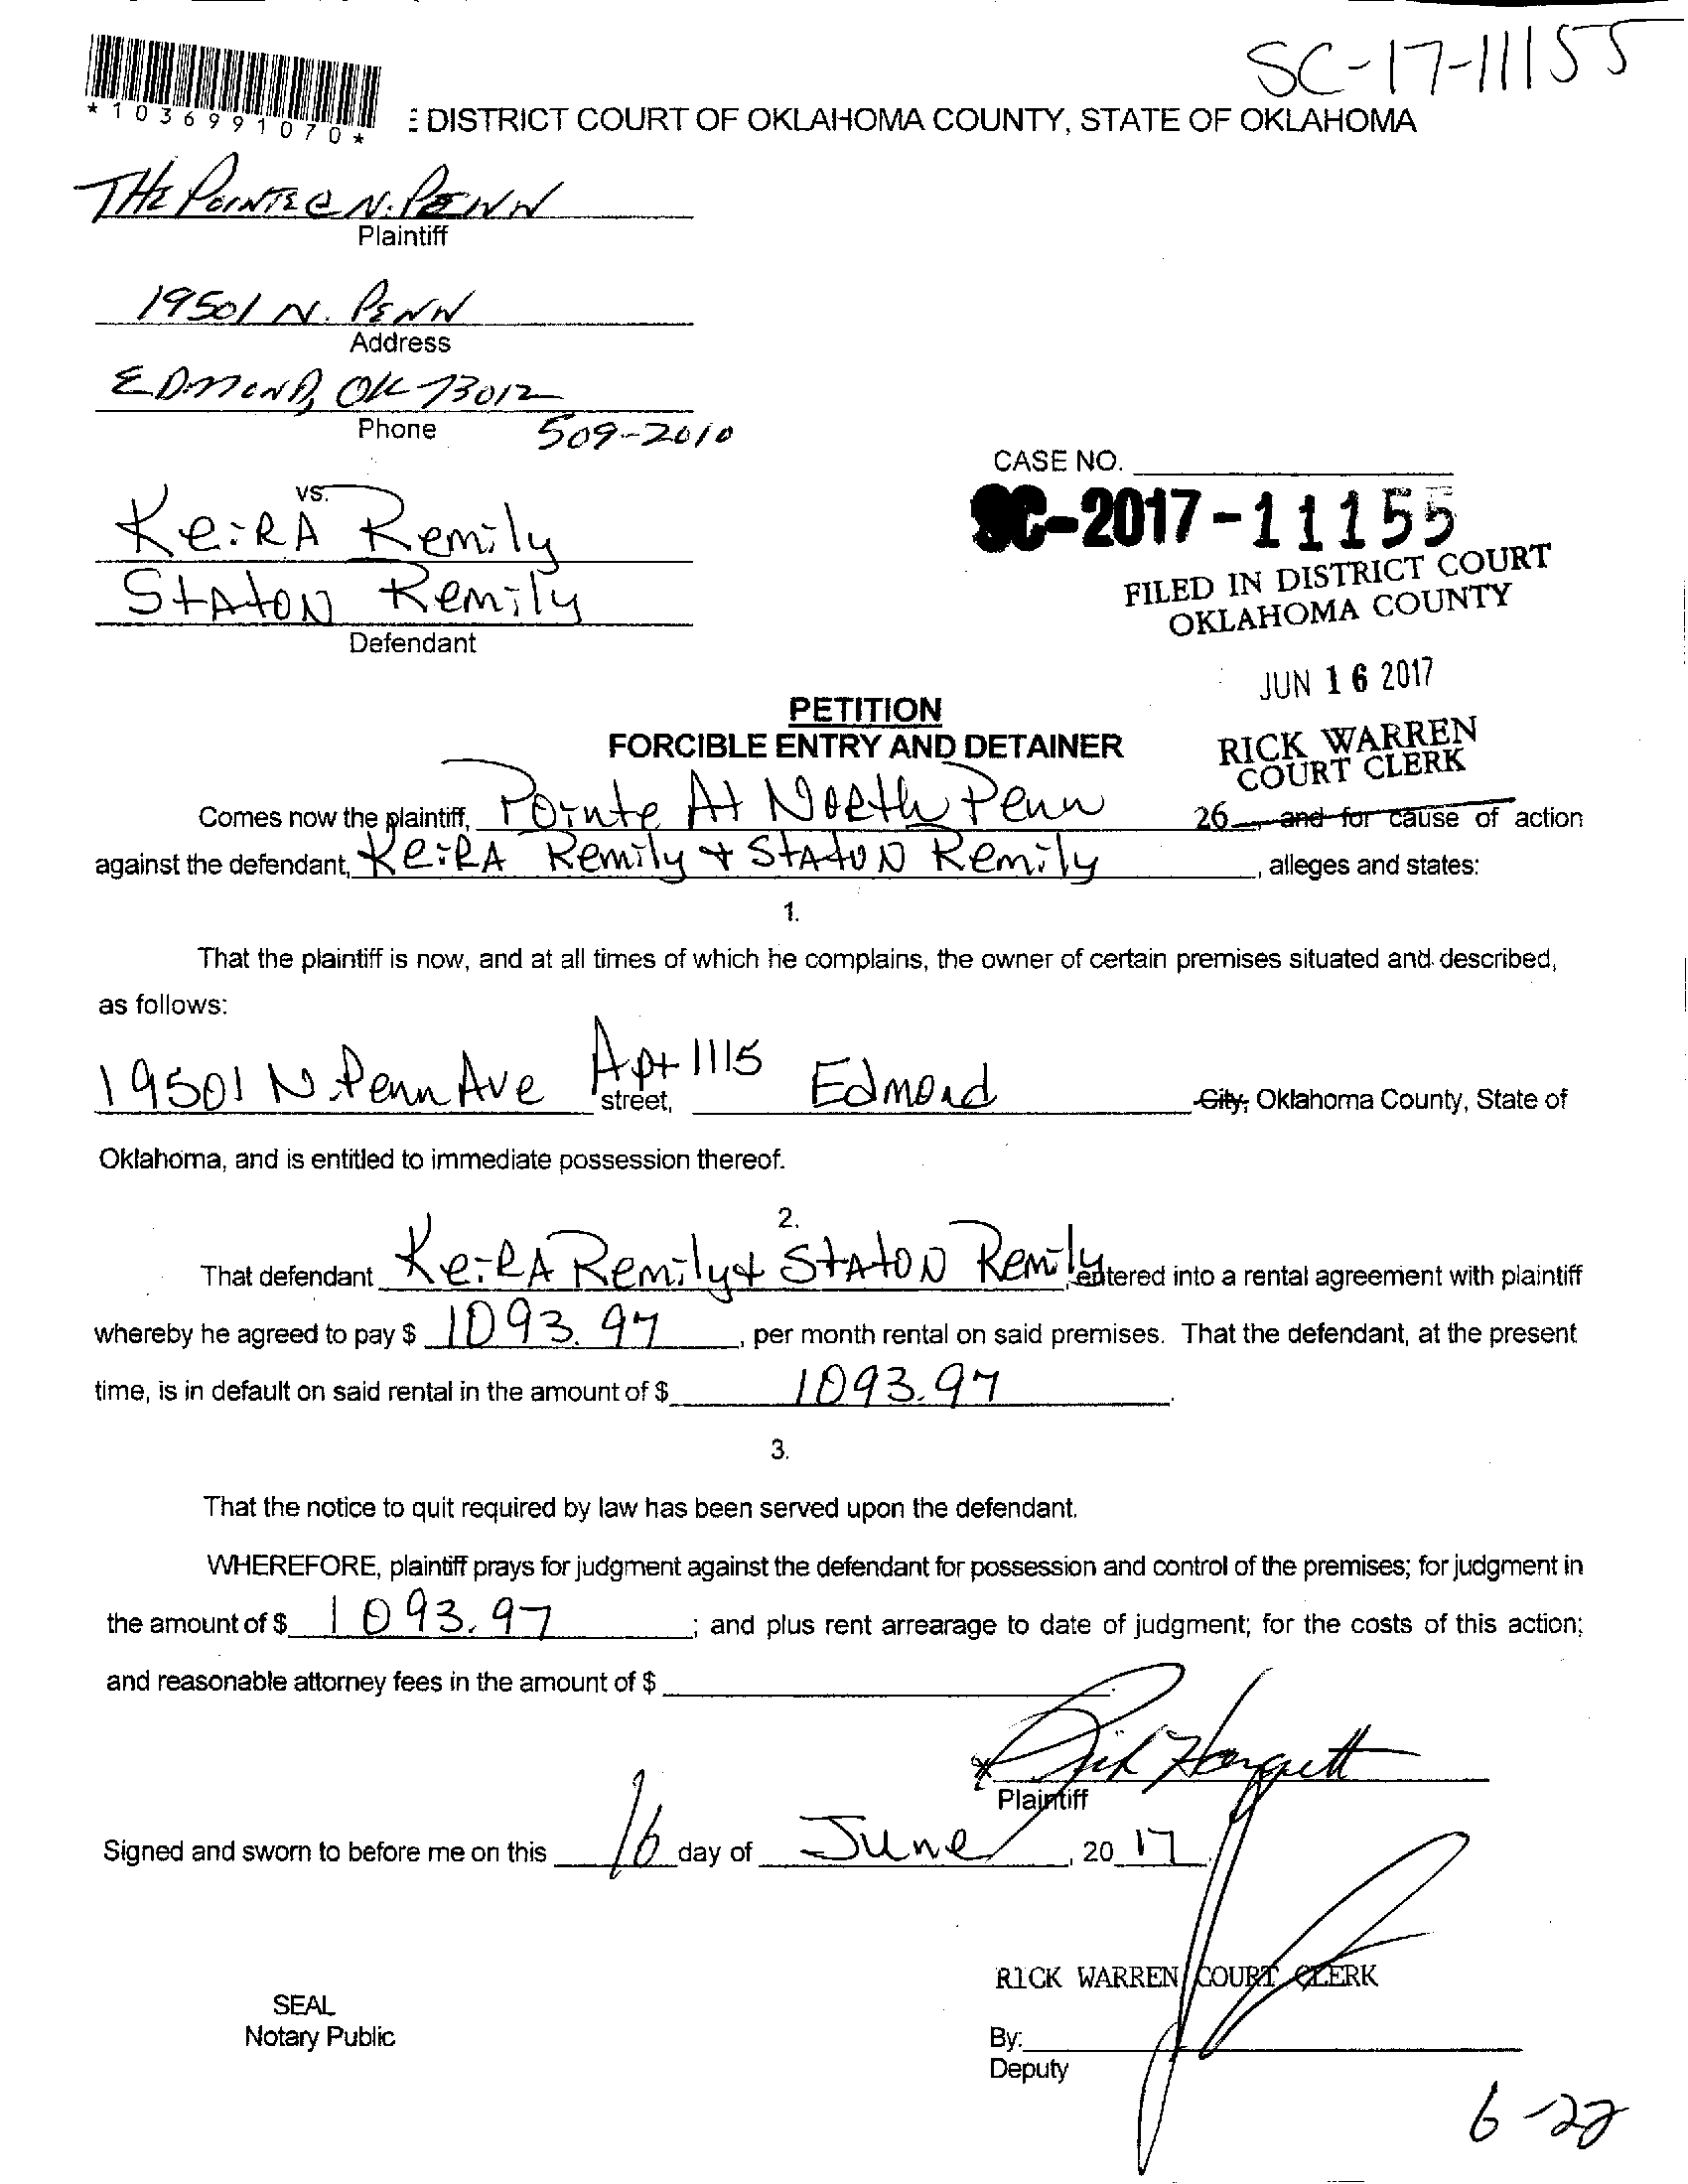 SC-17-11155
*1036991070*
DISTRICT COURT OF OKLAHOMA COUNTY, STATE OF OKLAHOMA
THE POINTE @ N. PENN
Plaintiff
19501 N. PENN
Address
EDMOND, OK 73012
Phone 509-2010
CASE NO.
SC-2017-11155
vs.
KeiRA Remily
StAtoN Remily
Defendant
FILED IN DISTRICT COURT
OKLAHOMA COUNTY
JUN 16 2017
RICK WARREN
COURT CLERK
PETITION
FORCIBLE ENTRY AND DETAINER
Comes now the plaintiff, Pointe At North Penn 26 , and for cause of action
against the defendant, KeiRA Remily + StAtoN Remily , alleges and states:
1.
That the plaintiff is now, and at all times of which he complains, the owner of certain premises situated and described,
as follows:
19501 N. Penn Ave Apt 1115 street, Edmond City, Oklahoma County, State of
Oklahoma, and is entitled to immediate possession thereof.
2.
That defendant KeiRA Remily + StAtoN Remily, entered into a rental agreement with plaintiff
whereby he agreed to pay $ 1093.97 , per month rental on said premises. That the defendant, at the present
time, is in default on said rental in the amount of $ 1093.97 .
3.
That the notice to quit required by law has been served upon the defendant.
WHEREFORE, plaintiff prays for judgment against the defendant for possession and control of the premises; for judgment in
the amount of $ 1093.97 ; and plus rent arrearage to date of judgment; for the costs of this action;
and reasonable attorney fees in the amount of $ .
Plaintiff
Signed and sworn to before me on this 16 day of June , 20 17.
RICK WARREN COURT CLERK
SEAL
Notary Public
By:
Deputy
6-22